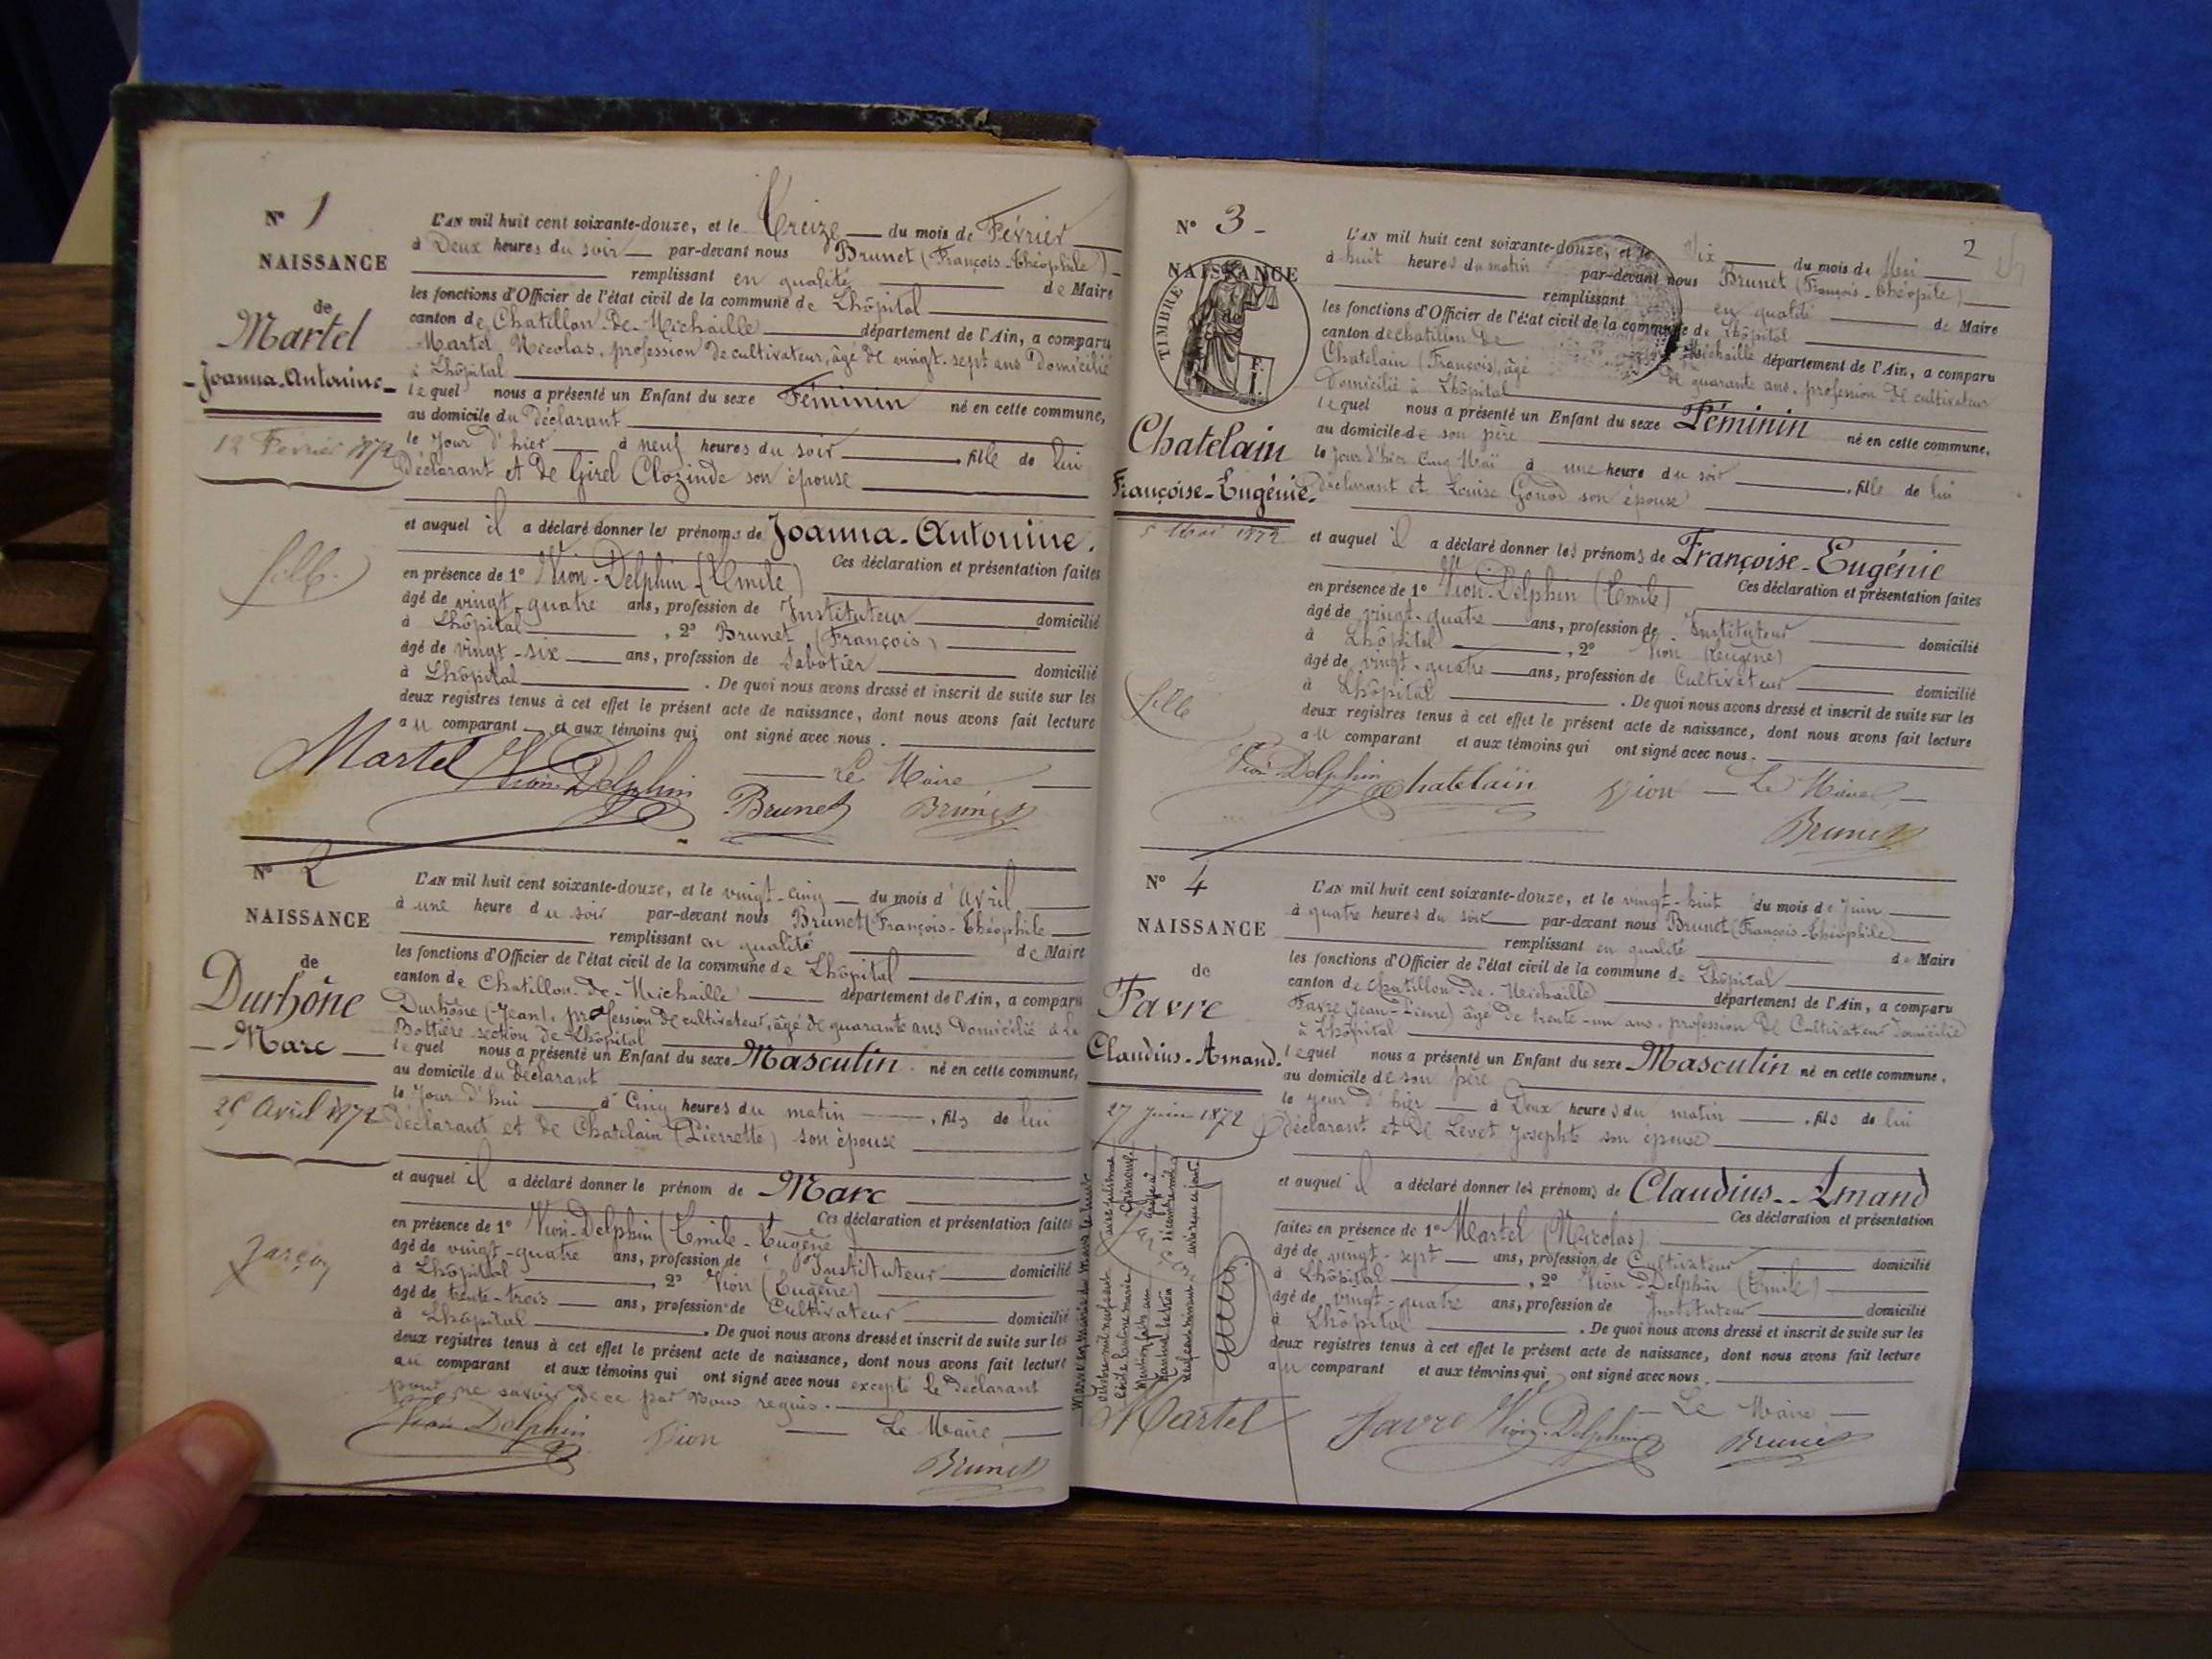 N° 1
NAISSANCE
de
Martel
Joanna-Antonine
12 Février 1872
fille
L'AN mil huit cent soixante-douze, et le Treize du mois de Février
à Deux heures du soir par-devant nous Brunet (François-Théophile)
remplissant en qualité de Maire
les fonctions d'Officier de l'état civil de la commune de Lhôpital
canton de Chatillon-De-Michaille département de l'Ain, a comparu
Martel Nicolas, profession De cultivateur, âgé de vingt-sept ans Domicilié
à Lhôpital
lequel nous a présenté un Enfant du sexe Féminin né en cette commune,
au domicile du Déclarant
le Jour d'hier à neuf heures du soir, fille de lui
Déclarant et De Girel Clozinde son épouse
et auquel il a déclaré donner les prénoms de Joanna-Antonine.
Ces déclaration et présentation faites
en présence de 1° Vion-Delphin (Emile)
âgé de vingt-quatre ans, profession de Instituteur domicilié
à Lhôpital, 2° Brunet (François)
âgé de vingt-six ans, profession de Sabotier domicilié
à Lhôpital. De quoi nous avons dressé et inscrit de suite sur les
deux registres tenus à cet effet le présent acte de naissance, dont nous avons fait lecture
au comparant et aux témoins qui ont signé avec nous.
Martel Vion-Delphin Le Maire
Brunet Brunet
N° 2
NAISSANCE
de
Durhône
Marc
25 Avril 1872
garçon
L'AN mil huit cent soixante-douze, et le vingt-cinq du mois d'Avril
à une heure du soir par-devant nous Brunet (François-Théophile
remplissant en qualité de Maire
les fonctions d'Officier de l'état civil de la commune de Lhôpital
canton de Chatillon-de-Michaille département de l'Ain, a comparu
Durhône (Jean), profession de cultivateur, âgé de quarante ans Domicilié à la
Bottière section de Lhôpital
lequel nous a présenté un Enfant du sexe Masculin né en cette commune,
au domicile du Déclarant
le Jour d'hui à Cinq heures du matin, fils de lui
déclarant et de Chatelain (Pierrette) son épouse
et auquel il a déclaré donner le prénom de Marc
Ces déclaration et présentation faites
en présence de 1° Vion-Delphin (Emile-Eugène
âgé de vingt-quatre ans, profession de Instituteur domicilié
à Lhôpital, 2° Vion (Eugène)
âgé de trente-trois ans, profession de Cultivateur domicilié
à Lhôpital. De quoi nous avons dressé et inscrit de suite sur les
deux registres tenus à cet effet le présent acte de naissance, dont nous avons fait lecture
au comparant et aux témoins qui ont signé avec nous excepté le déclarant
pour ne savoir de ce par nous requis.
Vion Delphin Vion Le Maire
Brunet
2
N° 3
NAISSANCE
TIMBRE
F.
I.
Chatelain
Françoise-Eugénie
5 Mai 1872
fille
L'AN mil huit cent soixante-douze, et le Six du mois de Mai
à huit heures du matin par-devant nous Brunet (François-Théopile)
remplissant en qualité de Maire
les fonctions d'Officier de l'état civil de la commune de Lhôpital
canton de chatillon De Michaille département de l'Ain, a comparu
Chatelain (François), âgé de quarante ans, profession de cultivateur
Domicilié à Lhôpital
lequel nous a présenté un Enfant du sexe Féminin né en cette commune,
au domicile de son père
le Jour d'hier Cinq Mai à une heure du soir, fille de lui
Déclarant et Louise Gonod son épouse
et auquel il a déclaré donner les prénoms de Françoise-Eugénie
Ces déclaration et présentation faites
en présence de 1° Vion-Delphin (Emile)
âgé de vingt-quatre ans, profession de Instituteur domicilié
à Lhôpital, 2° Vion (Eugène)
âgé de vingt-quatre ans, profession de Cultivateur domicilié
à Lhôpital. De quoi nous avons dressé et inscrit de suite sur les
deux registres tenus à cet effet le présent acte de naissance, dont nous avons fait lecture
au comparant et aux témoins qui ont signé avec nous.
Vion-Delphin Chatelain Vion Le Maire
Brunet
N° 4
NAISSANCE
de
Favre
Claudius-Amand.
27 Juin 1872
L'AN mil huit cent soixante-douze, et le vingt-huit du mois de Juin
à quatre heures du soir par-devant nous Brunet (François-Théophile)
remplissant en qualité de Maire
les fonctions d'Officier de l'état civil de la commune de Lhôpital
canton de chatillon-de-Michaille département de l'Ain, a comparu
Favre (Jean-Pierre) âgé de trente-un ans, profession de Cultivateur Domicilié
à Lhôpital
lequel nous a présenté un Enfant du sexe Masculin né en cette commune,
au domicile de son père
le jour d'hier à Deux heures du matin, fils de lui
déclarant et De Levet Josephte son épouse
et auquel il a déclaré donner les prénoms de Claudius-Amand
Ces déclaration et présentation
faites en présence de 1° Martel (Nicolas)
âgé de vingt-sept ans, profession de Cultivateur domicilié
à Lhôpital, 2° Vion-Delphin (Emile)
âgé de vingt-quatre ans, profession de Instituteur domicilié
à Lhôpital. De quoi nous avons dressé et inscrit de suite sur les
deux registres tenus à cet effet le présent acte de naissance, dont nous avons fait lecture
au comparant et aux témoins qui ont signé avec nous.
Martel Favre Vion-Delphin Le Maire
Brunet